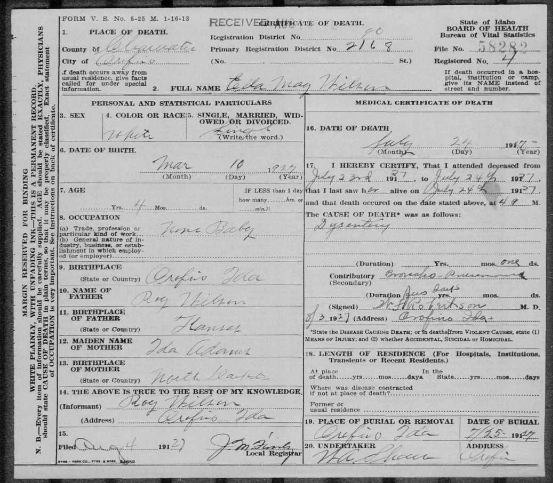 FORM V. S. No. 5-25 M. 1-16-13
RECEIVED
CERTIFICATE OF DEATH.
State of Idaho
BOARD OF HEALTH
Bureau of Vital Statistics
1. PLACE OF DEATH.
Registration District No. 80
County of Clearwater
Primary Registration District No. 2168
File No. 58282
City of Orofino
(No. St.)
Registered No. 4
(If death occurs away from usual residence, give facts called for under special information.)
(If death occurred in a hospital, institution or camp, give its NAME instead of street and number.
2. FULL NAME May Wilson
PERSONAL AND STATISTICAL PARTICULARS
3. SEX
4. COLOR OR RACE
White
5. SINGLE, MARRIED, WIDOWED OR DIVORCED.
Single
(Write the word.)
6. DATE OF BIRTH
Mar 10
(Month) (Day) (Year)
7. AGE
Yrs. 4 Mos. ds.
IF LESS than 1 day
how many
hrs. or min.?
8. OCCUPATION
None Baby
(a) Trade, profession or particular kind of work.
(b) General nature of industry, business, or establishment in which employed (or employer)
9. BIRTHPLACE
(State or Country)
Orofino Ida
10. NAME OF FATHER
Roy Wilson
11. BIRTHPLACE OF FATHER
(State or Country)
Kansas
12. MAIDEN NAME OF MOTHER
Ida Adams
13. BIRTHPLACE OF MOTHER
(State or Country)
North
14. THE ABOVE IS TRUE TO THE BEST OF MY KNOWLEDGE.
(Informant) Roy Wilson
(Address) Orofino Ida
15.
Filed Aug 4 1927
Local Registrar
MEDICAL CERTIFICATE OF DEATH
16. DATE OF DEATH
July 24
(Month) (Day) (Year)
17. I HEREBY CERTIFY, That I attended deceased from
July 22nd 1927 to July 24th 1927
that I last saw her alive on July 24th 1927
and that death occured on the date stated above, at 4 M.
The CAUSE OF DEATH* was as follows:
Dysentery
(Duration) Yrs. mos. one ds.
Contributory Broncho-Pneumonia
(Secondary)
(Duration Yrs. mos. ds.
(Signed) Robertson M. D.
1927 (Address) Orofino Ida
*State the DISEASE CAUSING DEATH; or in deaths from VIOLENT CAUSES, state (1) MEANS OF INJURY; and (2) whether ACCIDENTAL, SUICIDAL or HOMICIDAL.
18. LENGTH OF RESIDENCE (For Hospitals, Institutions, Transients or Recent Residents.)
At place of death yrs. mos days
In the State yrs. mos. days
Where was disease contracted if not at place of death?
Former or usual residence
19. PLACE OF BURIAL OR REMOVAL
Orofino Ida
DATE OF BURIAL
7/25 1927
20. UNDERTAKER
ADDRESS
Orofino
MARGIN RESERVED FOR BINDING
WRITE PLAINLY, WITH UNFADING INK—THIS IS A PERMANENT RECORD
N. B.—Every item of information should be carefully supplied. AGE should be stated EXACTLY. PHYSICIANS should state CAUSE OF DEATH in plain terms, so that it may be properly classified. Exact statement of OCCUPATION is very important. See instructions on back of certificate.